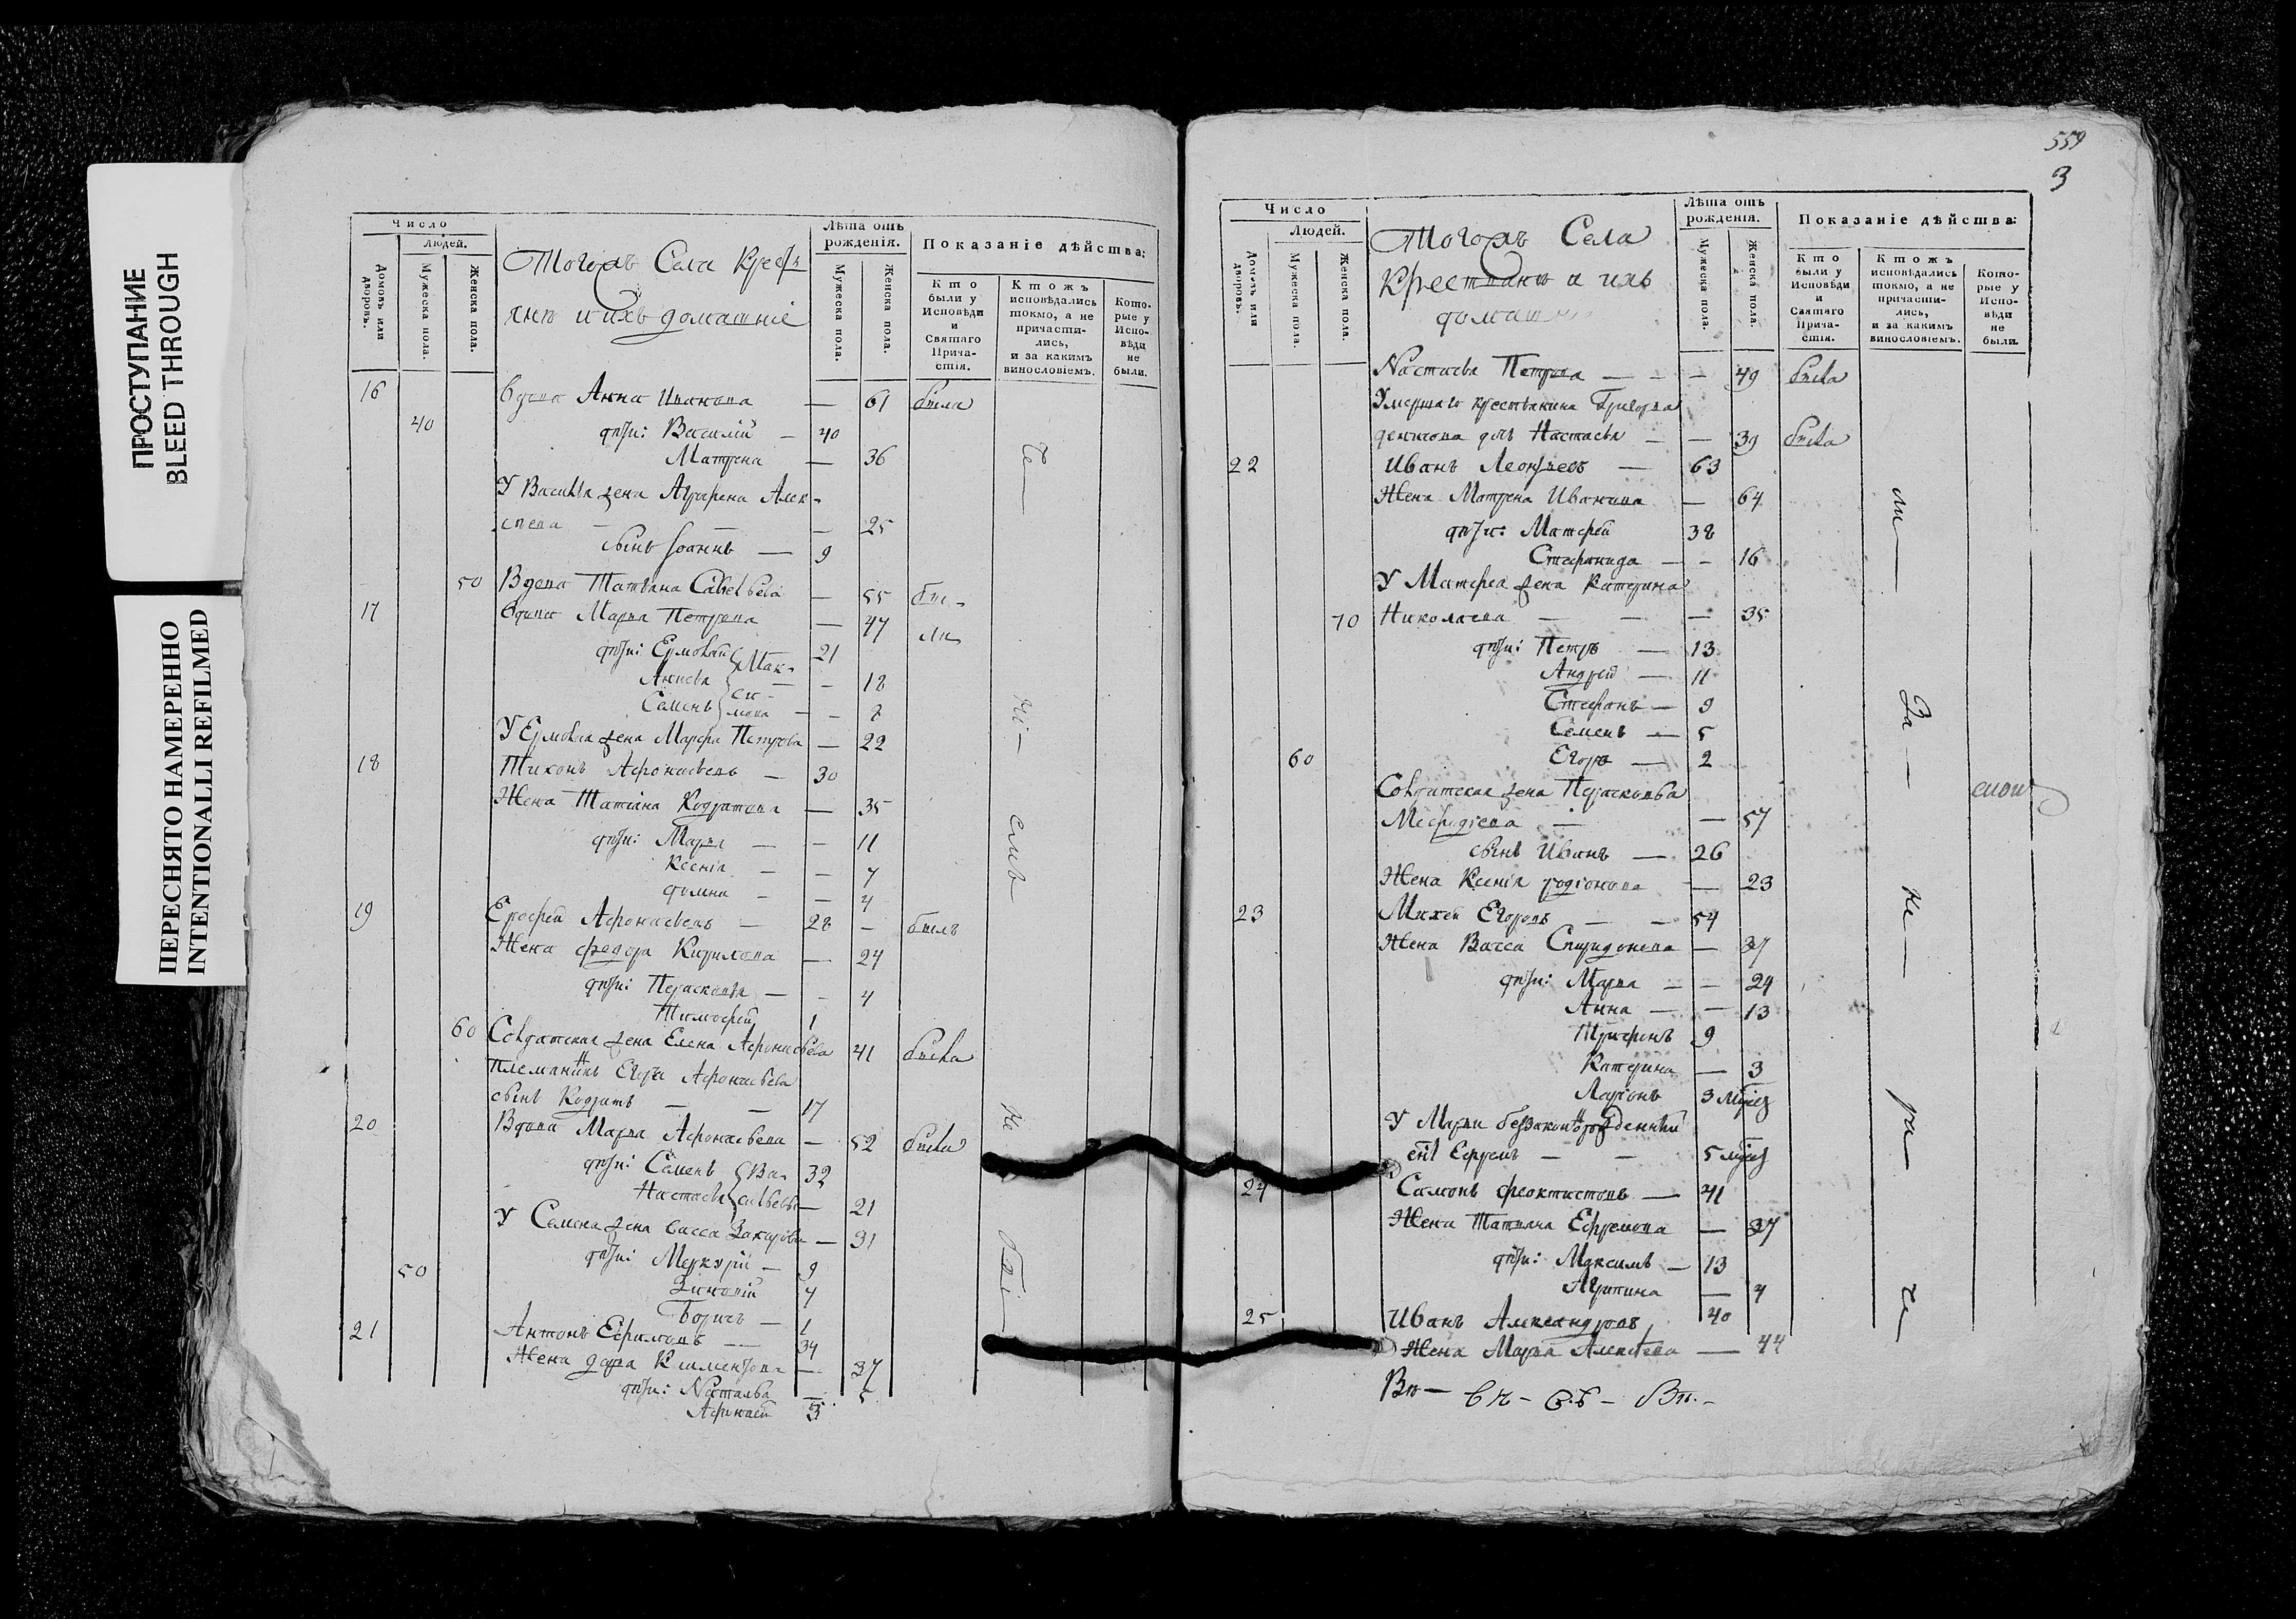 ПРОСТУПАНИЕ
BLEED THROUGH
ПЕРЕСНЯТО НАМЕРЕННО
INTENTIONALLI REFILMED
Число
Людей.
Домовъ или дворовъ.
Мужеска пола.
Женска пола.
Тогожъ Села Кресть
янъ и ихъ домашніе
Лѣта отъ рожденія.
Мужеска пола.
Женска пола.
Показаніе дѣйства:
Кто были у Исповѣди и Святаго Прича-стія.
Ктожъ исповѣдались токмо, а не причасти-лись, и за какимъ винословіемъ.
Кото-рые у Испо-вѣди не были.
16 Вдова Анна Иванова — 61 была
40 дѣти: Василій — 40
Матрена — 36
У Василья жена Аграфена Алек-
сеева — — 25
сынъ Іоаннъ — 9
50 Вдова Татьяна Савельева — 55 бы-
17 Вдова Марья Петрова — 47 ли
дѣти: Ермолай Мак- 21
Анисья си- — 18
Семенъ мова —
У Ермолая жена Марфа Петрова — 22
18 Тихонъ Афонасьевъ — 30
Жена Татіана Кодратова — 35
дѣти: Марья — — 11
Ксенія — — 7
Домна — — 4
19 Ерофей Афонасьевъ — 28 — былъ
Жена Федора Кирилова — 24
дѣти: Парасковья — — 4
Тимофей 1
60 Солдатская жена Елена Афонасьева 41 была
Племянникъ Егора Афонасьева
сынъ Кодратъ — — 17
20 Вдова Марья Афонасьева — 52 была
дѣти: Семенъ Ва- 32
Настасья сильевы — 21
У Семена жена Васса Захарова — 31
50 дѣти: Меркурій — 9
Зиновій 4
Борисъ — 1
21 Антонъ Ефимовъ — 34
Жена Дарья Климентова — 37
дѣти: Наталья — 5
Афонасей 3
559
3
Число
Людей.
Домовъ или дворовъ.
Мужеска пола.
Женска пола.
Тогожъ Села
Крестьянъ и ихъ
домашніе
Лѣта отъ рожденія.
Мужеска пола.
Женска пола.
Показаніе дѣйства:
Кто были у Исповѣди и Святаго Прича-стія.
Ктожъ исповѣдались токмо, а не причасти-лись, и за какимъ винословіемъ.
Кото-рые у Испо-вѣди не были.
Настасья Петрова — — — 49 была
Умершаго крестьянина Григорья
Денисова дочь Настасья — — 39 была
22 Иванъ Леонтьевъ — 63
Жена Матрена Иванова — 64
дѣти: Матфей 38
Стефанида — — 16
У Матфея жена Катерина
70 Николаева — — — 35
дѣти: Петръ — 13
Андрей — 11
Стефанъ — 9
Семенъ — 5
60 Егоръ — 2
Солдатская жена Парасковья
Мефодіева — — 57
сынъ Иванъ — 26
Жена Ксенія Родіонова — 23
23 Михей Егоровъ — — 54
Жена Васса Спиридонова — 37
дѣти: Марья — — 24
Анна — — 13
Трифонъ 9
Катерина — 3
Ларіонъ 3 мѣсец
У Марьи беззаконнорожденный
сынъ Ефремъ — — 5 мѣсец
24 Самонъ Феоктистовъ — 41
Жена Татьяна Ефремова — 37
дѣти: Максимъ — 13
Агрипина — 4
25 Иванъ Александровъ 40
Жена Марья Алексѣева — 44